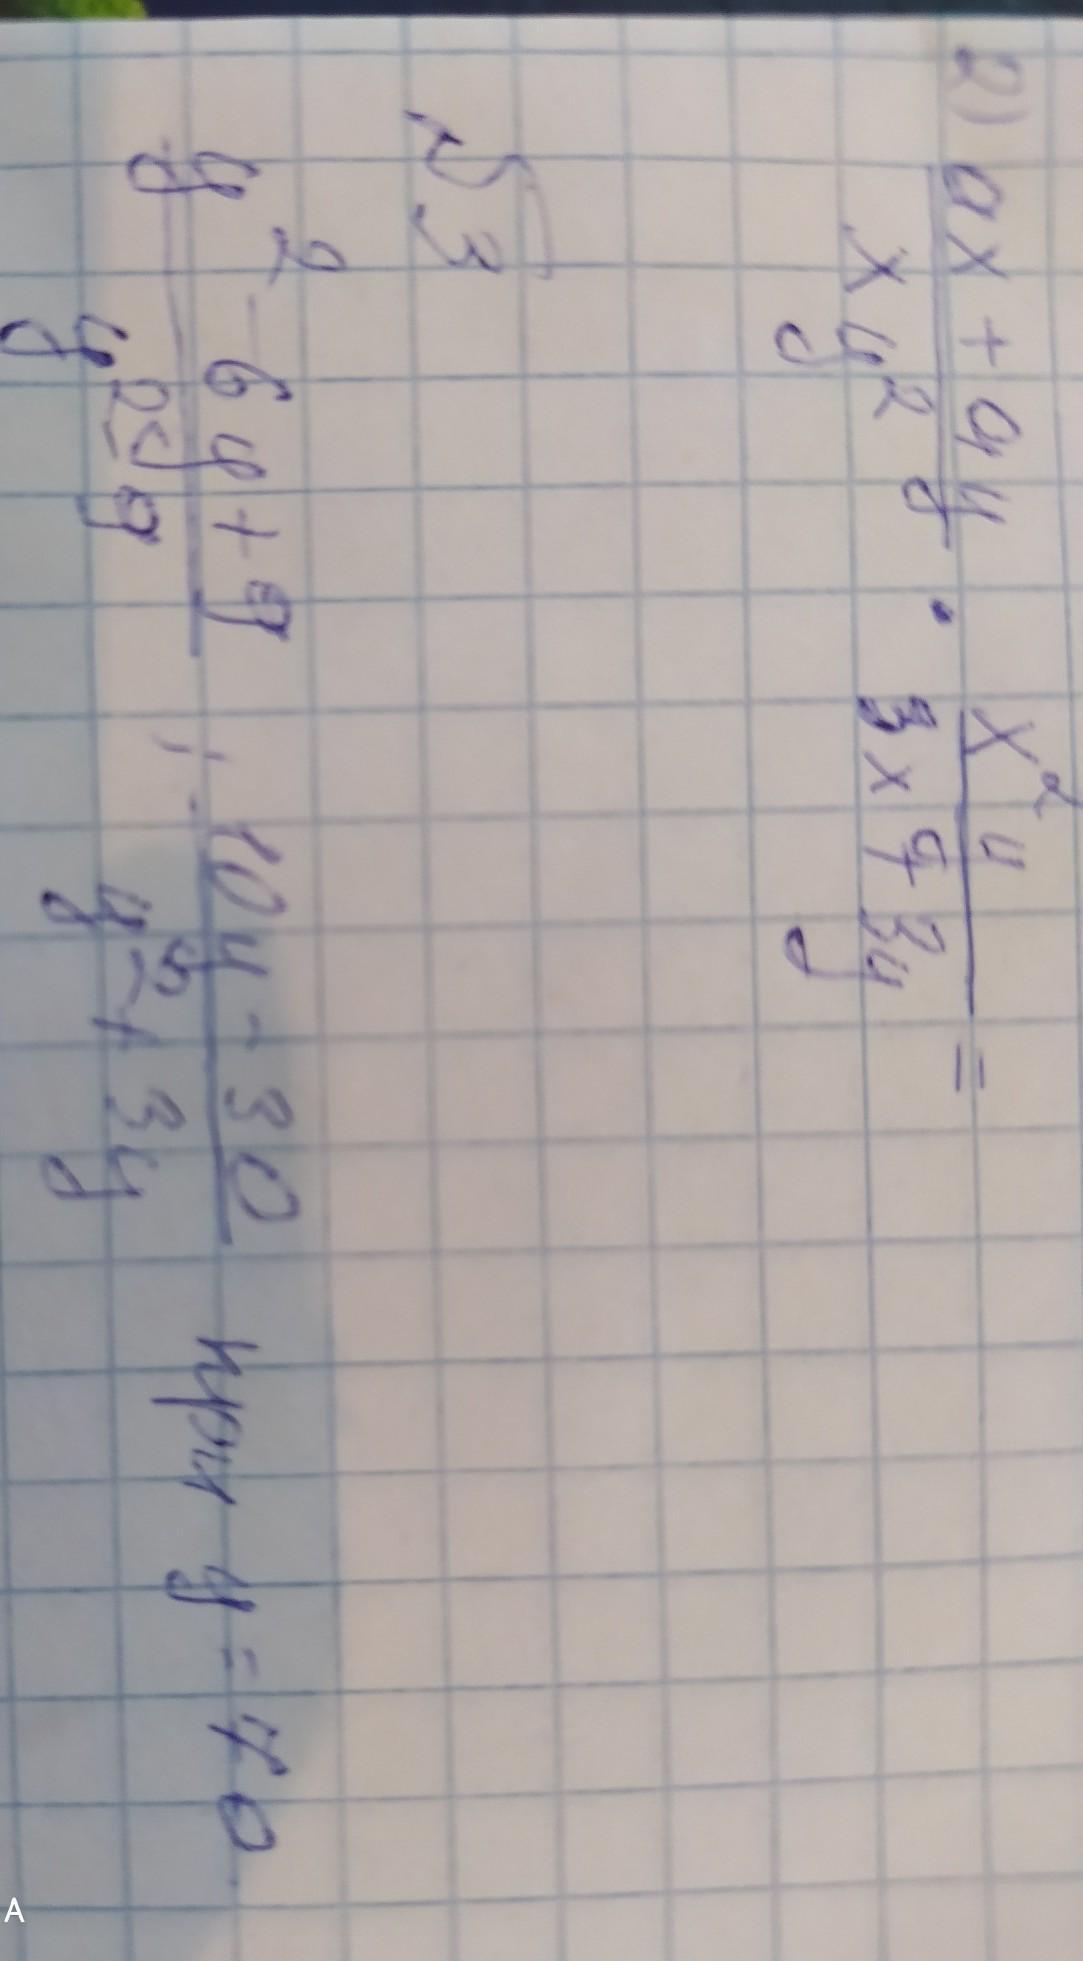 2) (ax + ay)/(xy²) · (x²y)/(3x + 3y) =
№3
(y² - 6y + 9)/(y² - 9) : (10y - 30)/(y² + 3y) при y = 70
A